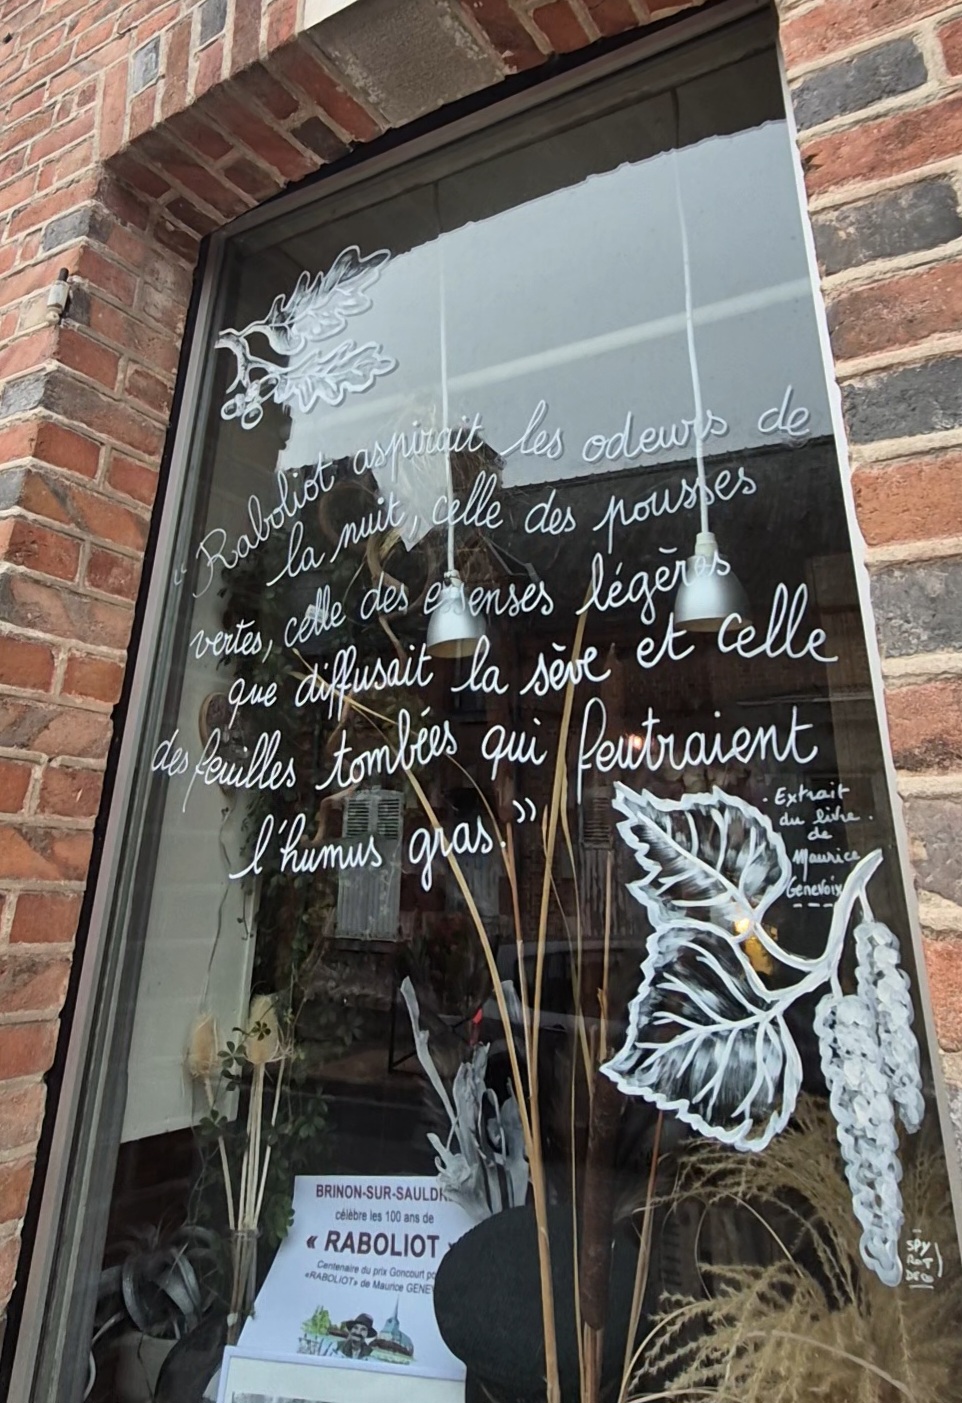 “ Raboliot aspirait les odeurs de
la nuit, celle des pousses
vertes, celle des essenses légères
que diffusait la sève et celle
des feuilles tombées qui feutraient
l'humus gras.”
. Extrait
du livre.
de
Maurice
Genevoix
SPY
ROT
DECO
BRINON-SUR-SAULDR
célèbre les 100 ans de
« RABOLIOT »
Centenaire du prix Goncourt po
«RABOLIOT» de Maurice GENEV